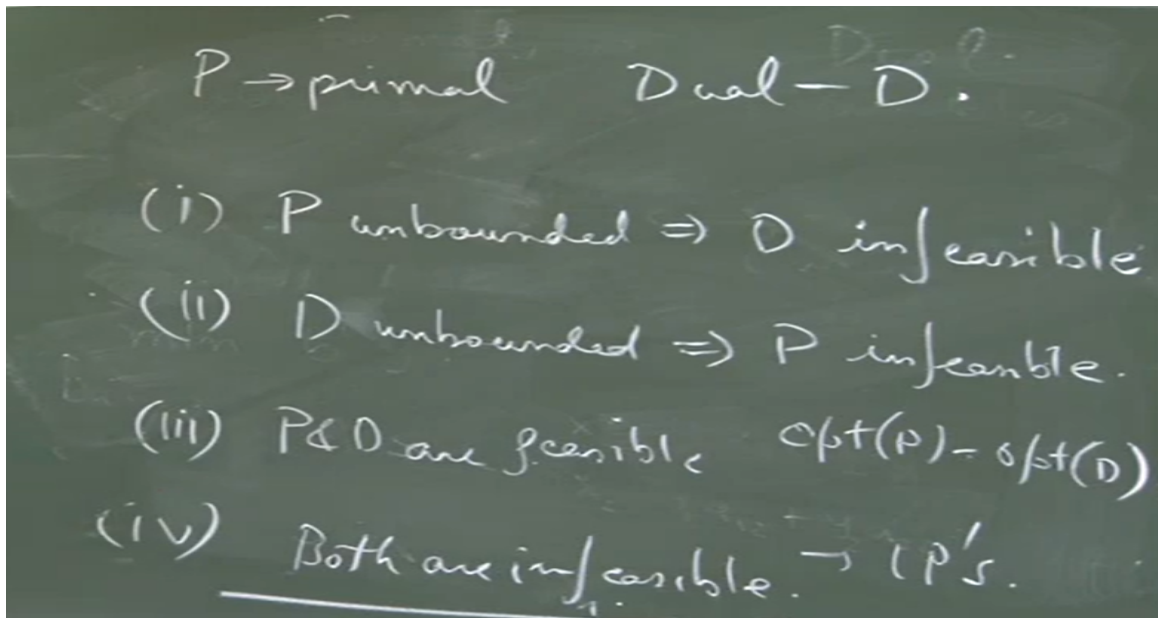 P → primal Dual - D.
(i) P unbounded ⇒ D infeasible
(ii) D unbounded ⇒ P infeasible.
(iii) P & D are feasible opt(P) = opt(D)
(iv) Both are infeasible. → LP's.